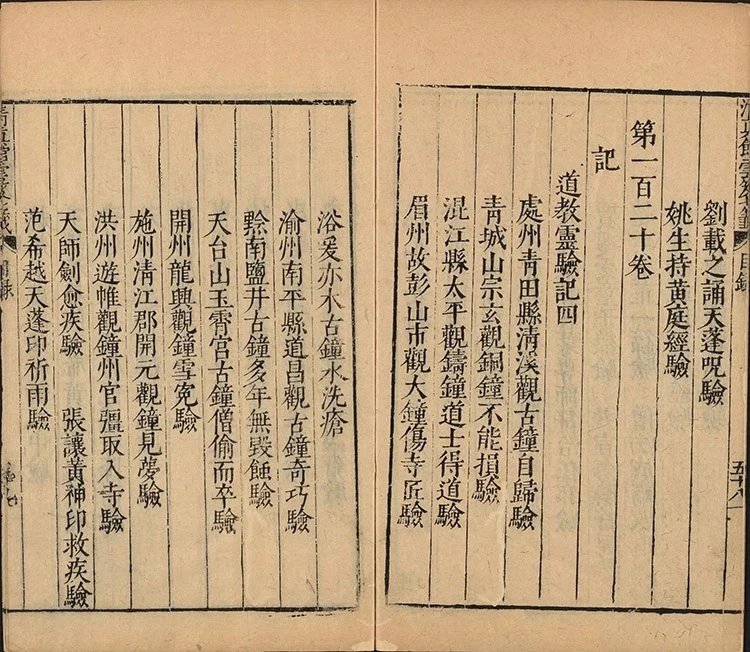 目錄
劉載之誦天蓬呪驗
姚生持黃庭經驗
第一百二十卷
記
道教靈驗記四
處州青田縣清溪觀古鐘自歸驗
青城山宗玄觀銅鐘不能損驗
混江縣太平觀鑄鐘道士得道驗
眉州故彭山市觀大鐘傷寺匠驗
浴爰亦木古鐘水洗瘡
渝州南平縣道昌觀古鐘奇巧驗
黔南鹽井古鐘多年無毀蝕驗
天台山玉霄宮古鐘僧偷而卒驗
開州龍興觀鐘雪冤驗
施州清江郡開元觀鐘見夢驗
洪州遊帷觀鐘州官彊取入寺驗
天師劍愈疾驗　張讓黃神印救疾驗
范希越天蓬印祈雨驗